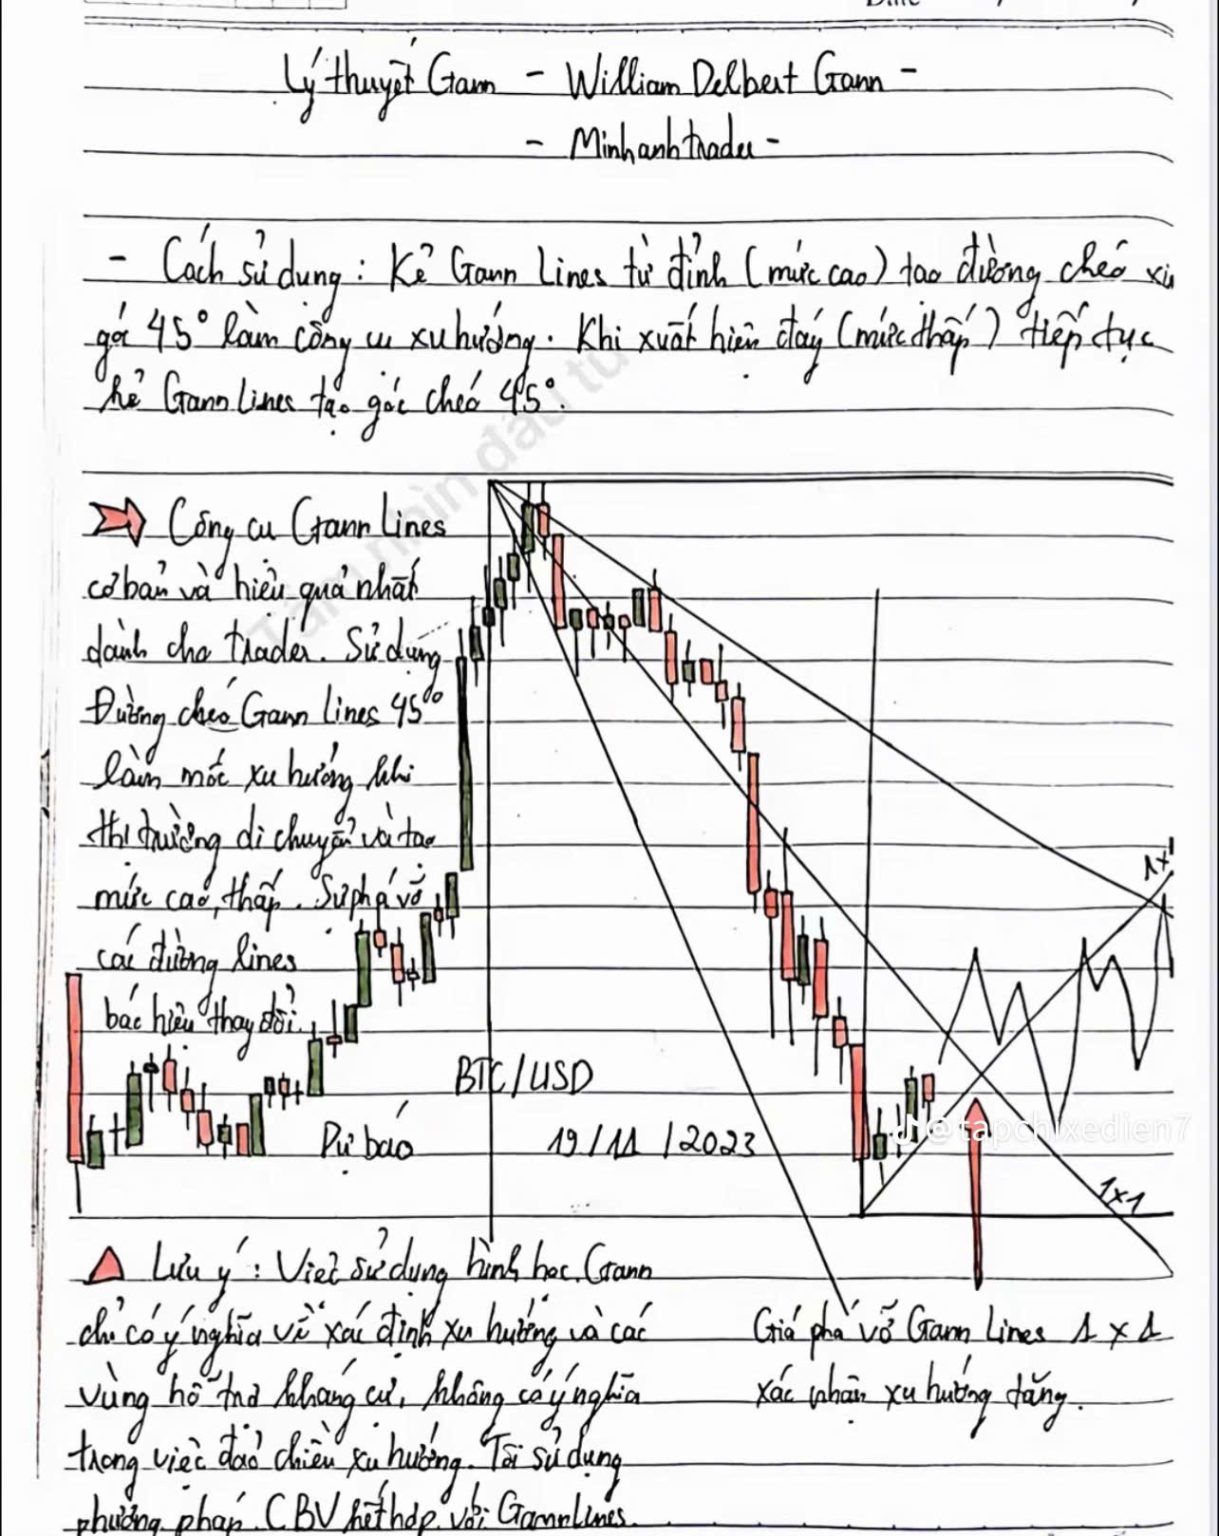 Lý thuyết Gann - William Delbert Gann -
- Minhanhtrader -
- Cách sử dụng : Kẻ Gann Lines từ đỉnh (mức cao) tạo đường chéo
góc 45° làm công cụ xu hướng. Khi xuất hiện đáy (mức thấp) tiếp tục
kẻ Gann Lines tạo góc chéo 45°.
Công cụ Gann Lines
cơ bản và hiệu quả nhất
dành cho trader. Sử dụng
Đường chéo Gann Lines 45°
làm mốc xu hướng khi
thị trường di chuyển và tạo
mức cao, thấp. Sự phá vỡ
các đường lines
báo hiệu thay đổi.
BTC/USD
Dự báo 19/11/2023
1x1
1x1
Lưu ý : Việc sử dụng hình học Gann
chỉ có ý nghĩa về xác định xu hướng và các
vùng hỗ trợ kháng cự, không có ý nghĩa
trong việc đảo chiều xu hướng. Tôi sử dụng
phương pháp CBV kết hợp với Gann Lines.
Giá phá vỡ Gann Lines 1 x 1
xác nhận xu hướng tăng.
Tầm nhìn đầu tư
@tapchixedien7